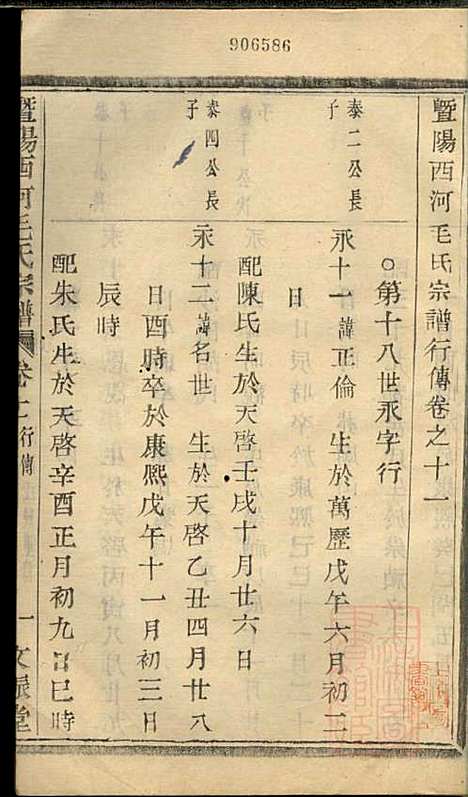 906586
暨陽西河毛氏宗譜行傳卷之十一
○第十八世永字行
泰二公長子
永十一諱正倫 生於萬歷戊午六月初二
日
配陳氏生於天啓壬戌十月廿六日
泰四公長子
永十二諱名世 生於天啓乙丑四月廿八
日酉時卒於康熙戊午十一月初三日
辰時
配朱氏生於天啓辛酉正月初九日巳時
暨陽西河毛氏宗譜 卷十一行傳 一 文振堂